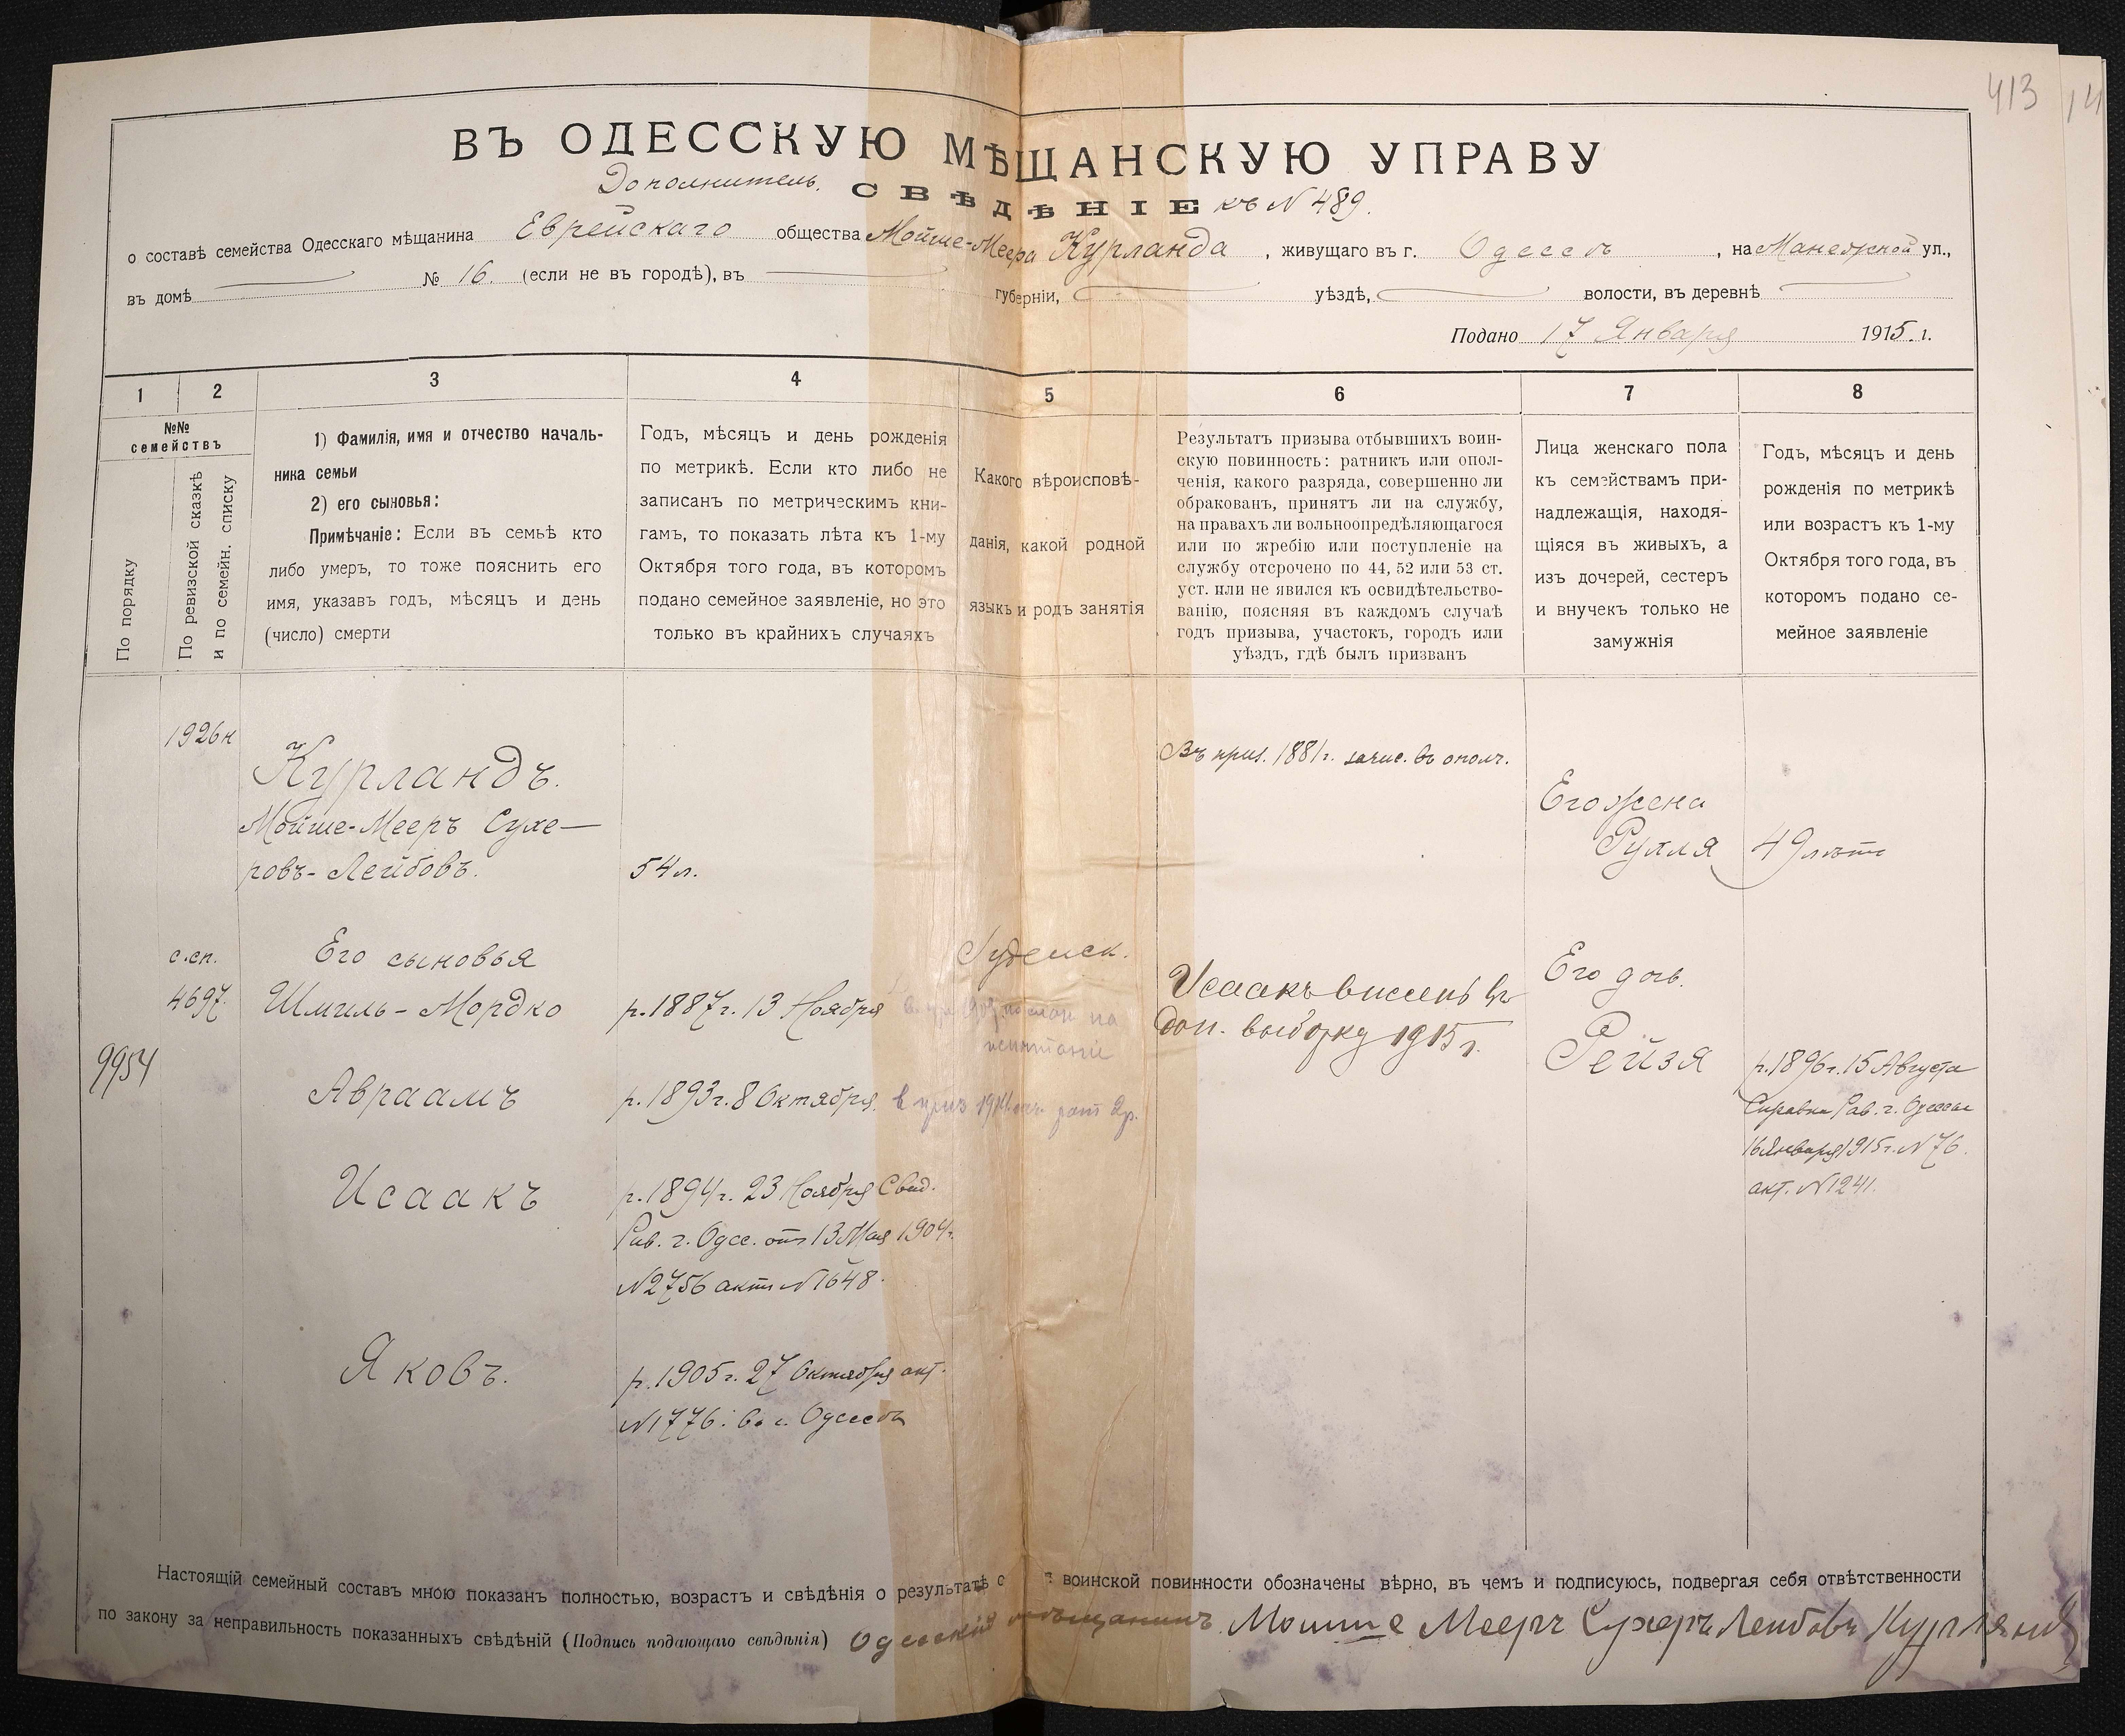 413
14
ВЪ ОДЕССКУЮ МѢЩАНСКУЮ УПРАВУ
Дополнитель. СВѢДѢНІЕ къ N 489.
о составѣ семейства Одесскаго мѣщанина Еврейскаго общества Мойше-Меера Курланда, живущаго въ г. Одессѣ, на Манежной ул.,
въ домѣ № 16. (если не въ городѣ), въ губерніи, уѣздѣ, волости, въ деревнѣ
Подано 17 Января 1915. г.
1
2
3
4
5
6
7
8
№№
семействъ
По порядку
По ревизской сказкѣ
и по семейн. списку
1) Фамилія, имя и отчество началь-
ника семьи
2) его сыновья:
Примѣчаніе: Если въ семьѣ кто
либо умеръ, то тоже пояснить его
имя, указавъ годъ, мѣсяцъ и день
(число) смерти
Годъ, мѣсяцъ и день рожденія
по метрикѣ. Если кто либо не
записанъ по метрическимъ кни-
гамъ, то показать лѣта къ 1-му
Октября того года, въ которомъ
подано семейное заявленіе, но это
только въ крайнихъ случаяхъ
Какого вѣроисповѣ-
данія, какой родной
языкъ и родъ занятія
Результатъ призыва отбывшихъ воин-
скую повинность: ратникъ или опол-
ченія, какого разряда, совершенно ли
обракованъ, принятъ ли на службу,
на правахъ ли вольноопредѣляющагося
или по жребію или поступленіе на
службу отсрочено по 44, 52 или 53 ст.
уст. или не явился къ освидѣтельство-
ванію, поясняя въ каждомъ случаѣ
годъ призыва, участокъ, городъ или
уѣздъ, гдѣ былъ призванъ
Лица женскаго пола
къ семействамъ при-
надлежащія, находя-
щіяся въ живыхъ, а
изъ дочерей, сестеръ
и внучекъ только не
замужнія
Годъ, мѣсяцъ и день
рожденія по метрикѣ
или возрастъ къ 1-му
Октября того года, въ
которомъ подано се-
мейное заявленіе
1926 н
Курландъ.
Мойше-Мееръ Сухе-
ровъ-Лейбовъ.
54 л.
Въ приз. 1881 г. зачис. въ ополч.
Его жена
Рухля 49 лѣтъ
с.сп.
4697.
9954
Его сыновья
Шмиль-Мордко
р. 1887 г. 13 Ноября
Іудейск.
на
испытаніе
Исаакъ внесенъ въ
доп. выборку 1915 г.
Его доч.
Рейзя
р. 1896 г. 15 Августа
Справка Рав. г. Одессы
16 Января 1915 г. N 76.
акт. N 1241.
Авраамъ
р. 1893 г. 8 Октября. в приз 1914 рат 2 р.
Исаакъ
р. 1894 г. 23 Ноября Свид.
Рав. г. Одес. отъ 13 Мая 1904 г.
N 2756 актъ N 1648.
Яковъ.
р. 1905 г. 27 Октября акт.
N 1776. Въ г. Одессѣ
Настоящій семейный составъ мною показанъ полностью, возрастъ и свѣдѣнія о результатѣ о воинской повинности обозначены вѣрно, въ чемъ и подписуюсь, подвергая себя отвѣтственности
по закону за неправильность показанныхъ свѣдѣній (Подпись подающаго свѣдѣнія) Одесскій мѣщанинъ Моише Мееръ Сухеръ Леибовъ Курляндъ